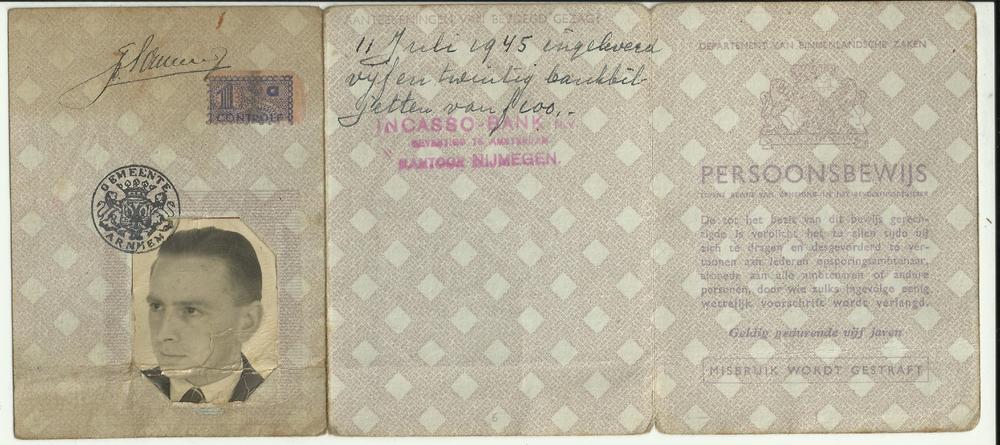 1 a
CONTROLE
GEMEENTE
ARNHEM
AANTEEKENINGEN VAN BEVOEGD GEZAG
11 Juli 1945 ingeleverd
vijf en twintig bankbil-
jetten van f 100,-
INCASSO-BANK N.V.
GEVESTIGD TE AMSTERDAM
KANTOOR NIJMEGEN.
6
DEPARTEMENT VAN BINNENLANDSCHE ZAKEN
PERSOONSBEWIJS
TEVENS BEWIJS VAN OPNEMING IN HET BEVOLKINGSREGISTER
De tot het bezit van dit bewijs gerech-
tigde is verplicht het te allen tijde bij
zich te dragen en desgevorderd te ver-
toonen aan iederen opsporingsambtenaar,
alsmede aan alle ambtenaren of andere
personen, door wie zulks ingevolge eenig
wettelijk voorschrift wordt verlangd.
Geldig gedurende vijf jaren
MISBRUIK WORDT GESTRAFT